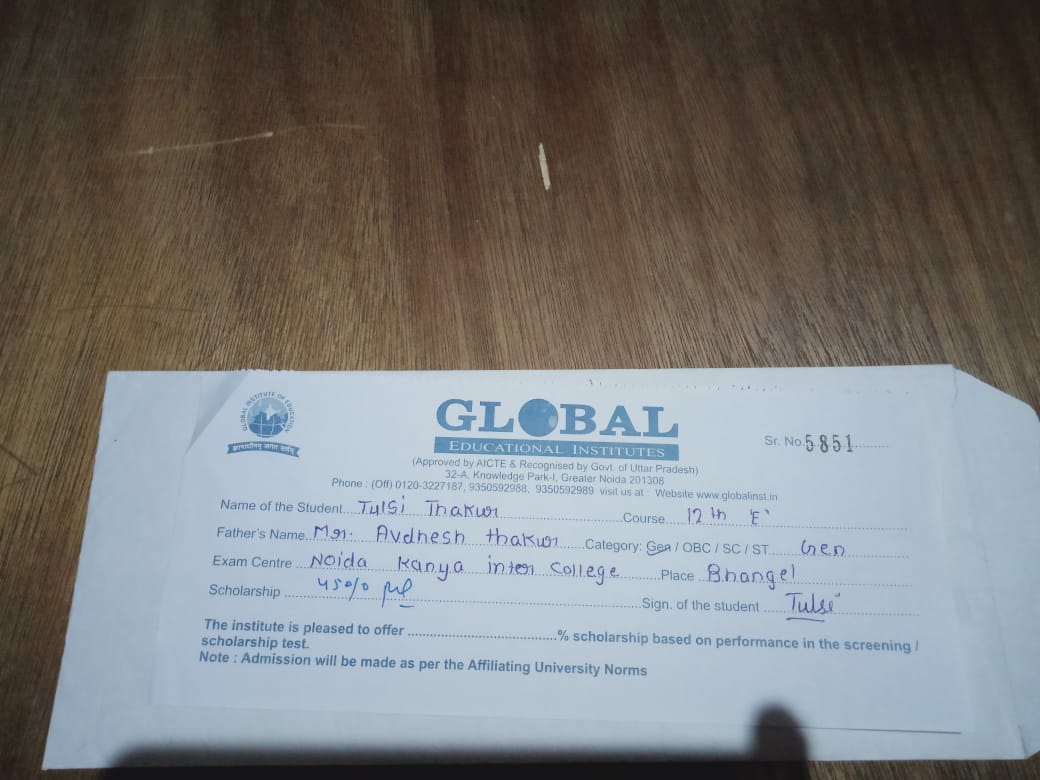 GLOBAL INSTITUTE OF EDUCATION
GLOBAL
EDUCATIONAL INSTITUTES
Sr. No. 5851
(Approved by AICTE & Recognised by Govt. of Uttar Pradesh)
32-A, Knowledge Park-I, Greater Noida 201308
Phone : (Off) 0120-3227187, 9350592988, 9350592989 visit us at : Website www.globalinst.in
Name of the Student Tulsi Thakur Course 12th 'E'
Father's Name Mr. Avdhesh thakur Category: Gen / OBC / SC / ST Gen
Exam Centre Noida Kanya inter College Place Bhangel
Scholarship 45% Sign. of the student Tulsi
The institute is pleased to offer ........................................% scholarship based on performance in the screening /
scholarship test.
Note : Admission will be made as per the Affiliating University Norms